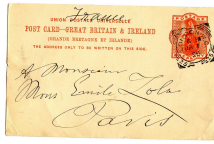 UNION POSTALE UNIVERSELLE
POST CARD—GREAT BRITAIN & IRELAND
(GRANDE BRETAGNE ET IRLANDE)
THE ADDRESS ONLY TO BE WRITTEN ON THIS SIDE.
A Monsieur
Mons Emile Zola
Paris